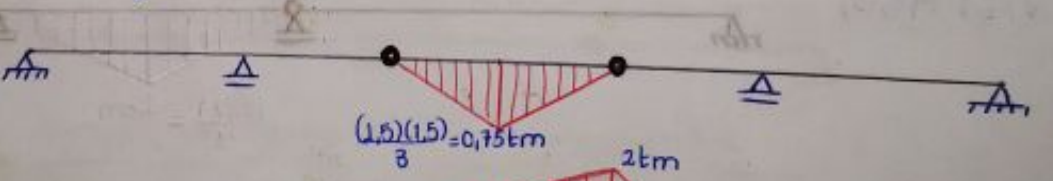 (1,5)(1,5)=0,75tm
3
2tm